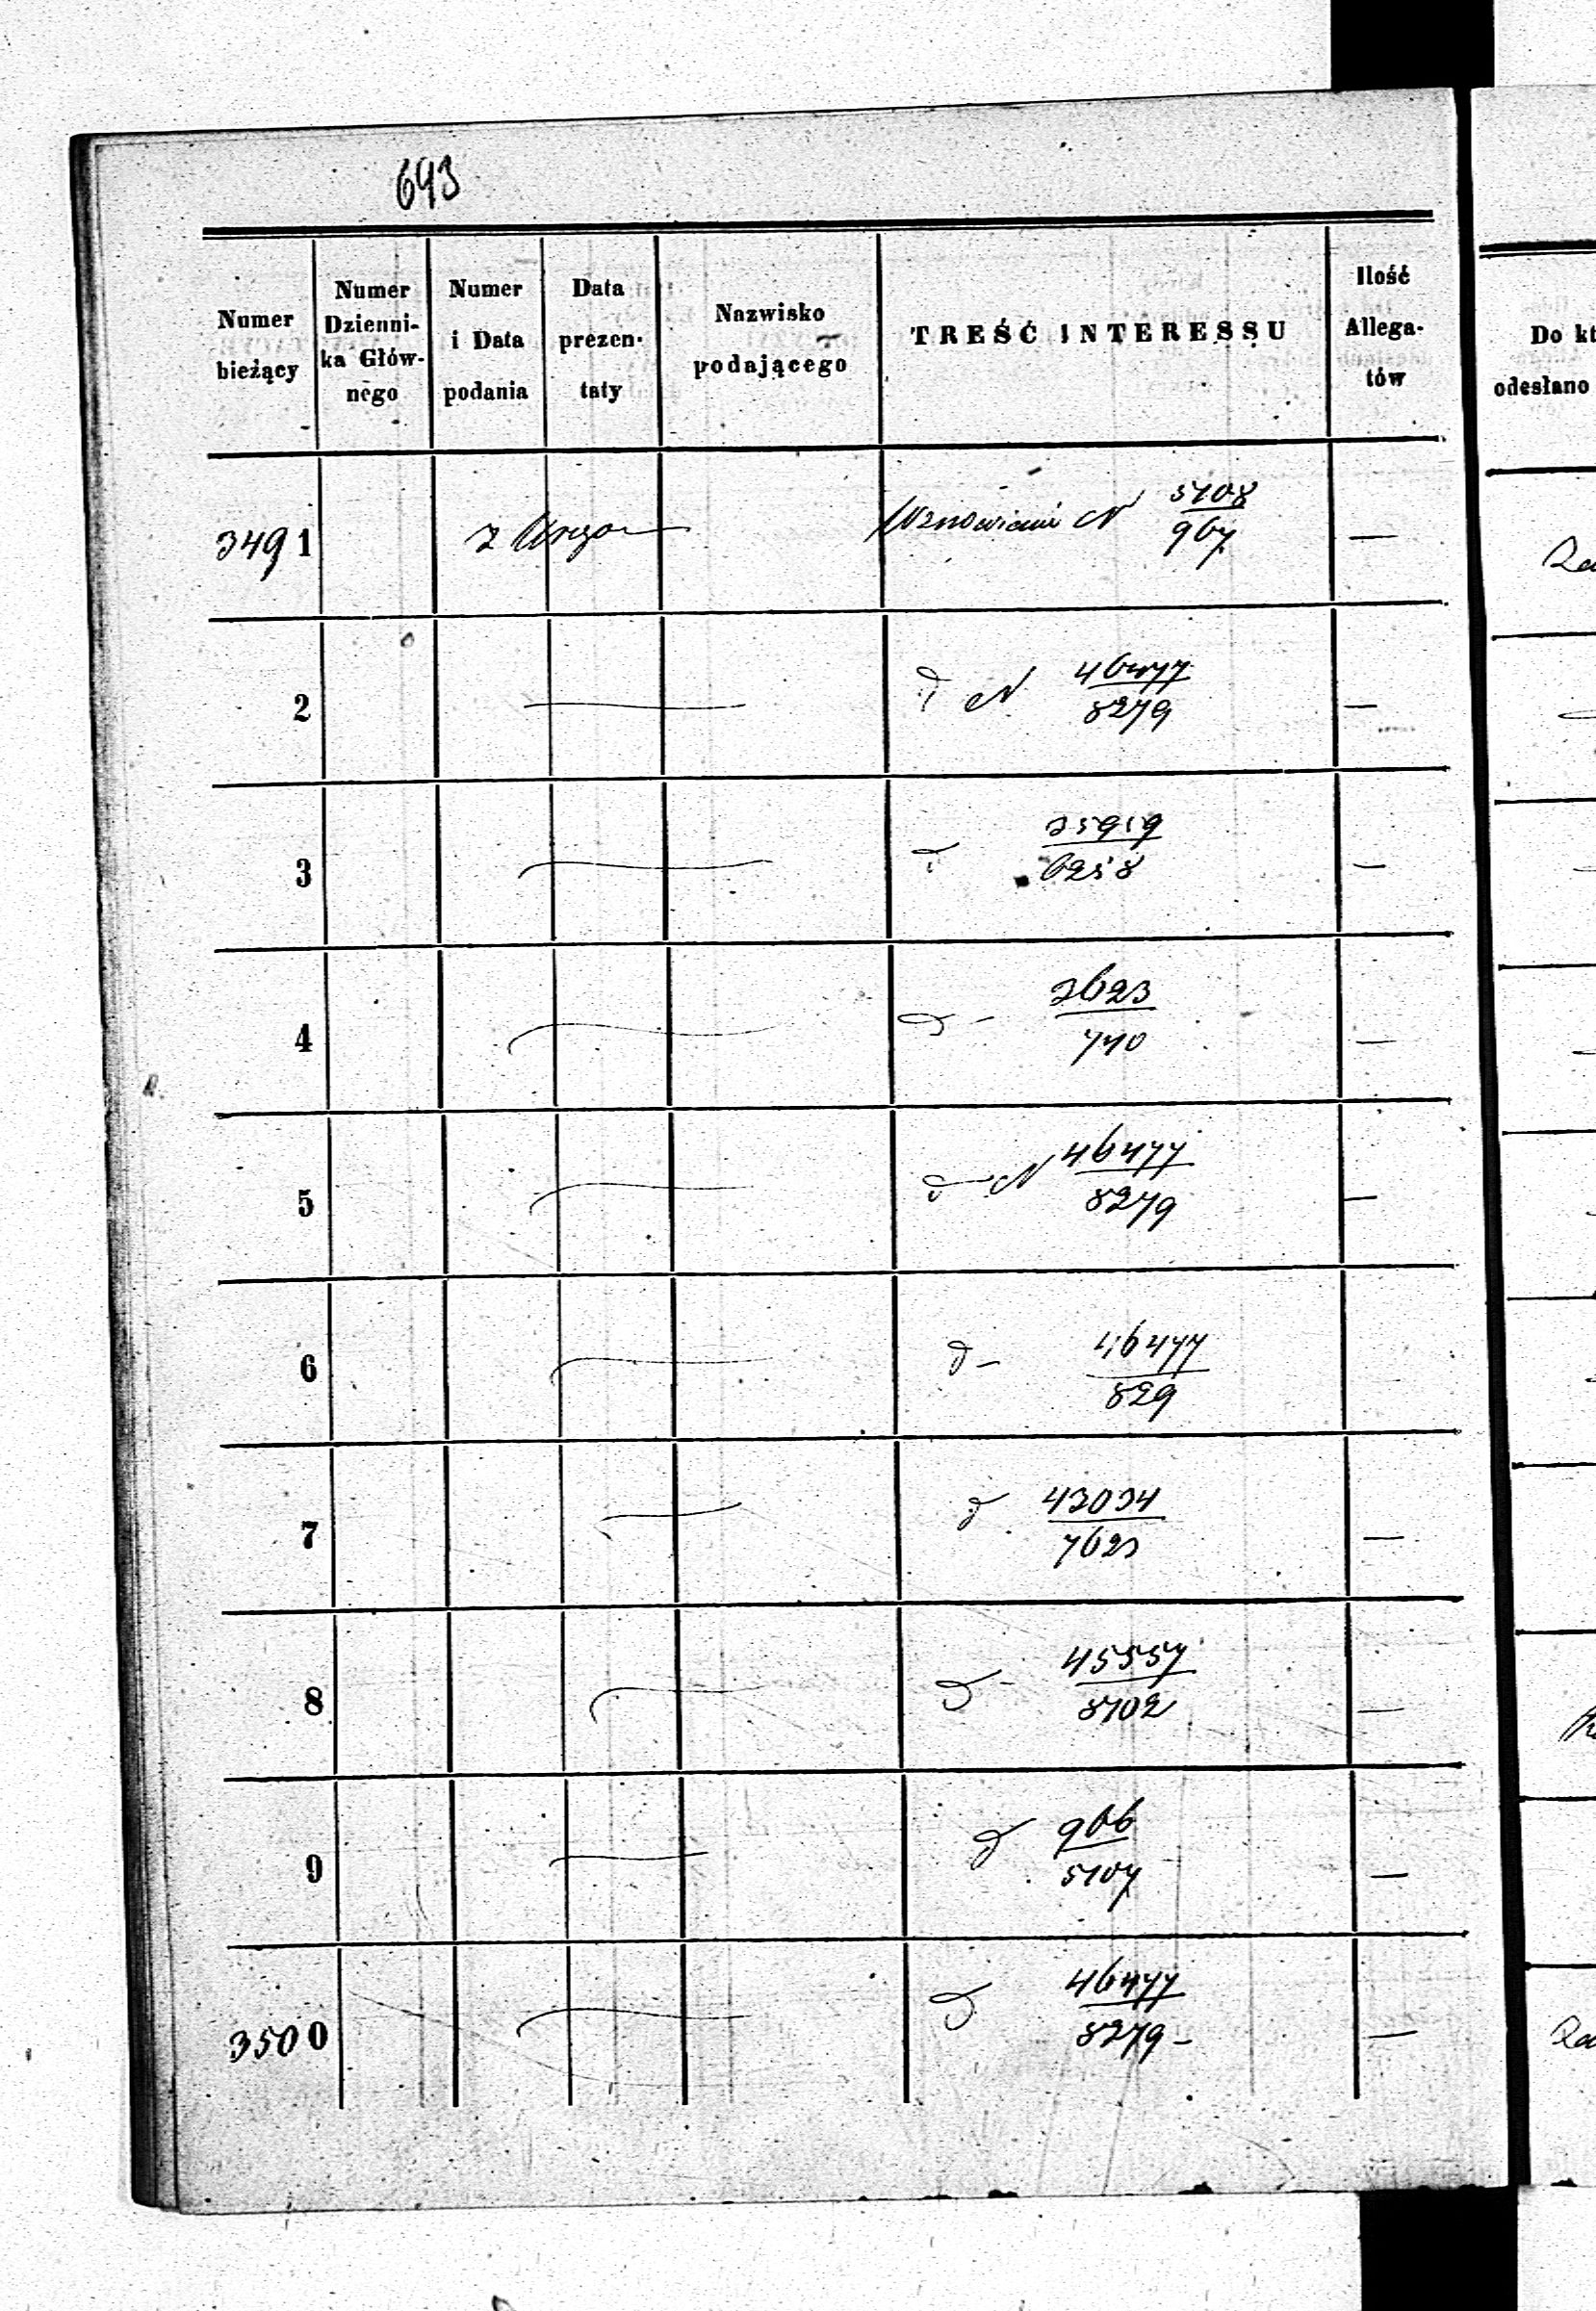 693
Numer bieżący
Numer Dzienni-ka Głów-nego
Numer i Data podania
Data prezen-taty
Nazwisko podającego
TREŚĆ INTERESSU
Ilość Allega-tów
Do kt
odesłano
3491 z Urzęo Wznowienie N 5108/967 —
2 — d N 46477/8279 —
3 — d 35959/6258 —
4 — d - 3623/740 —
5 — d N 46477/8279 —
6 — d - 46477/829
7 — d 43034/7623 —
8 — d - 45557/8102 —
9 — d 906/5107 —
3500 — d 46477/8279 - —